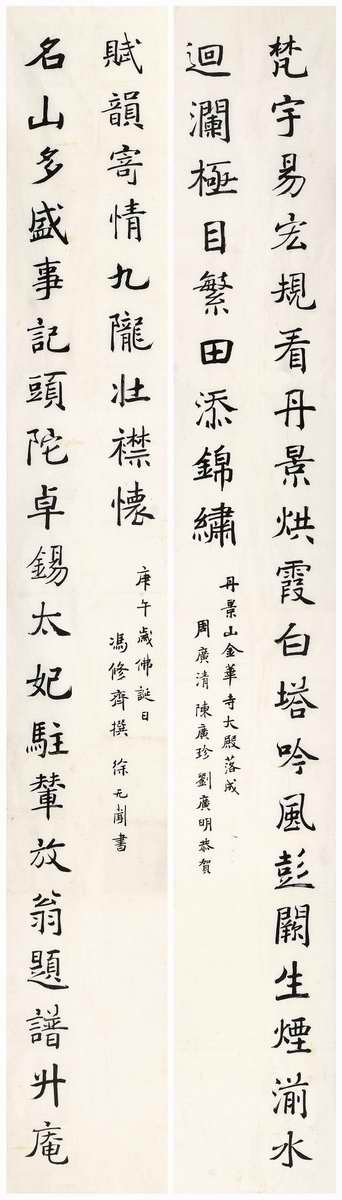 梵宇易宏規看丹景烘霞白塔吟風彭闕生煙湔水
迴瀾極目繁田添錦繡
丹景山金華寺大殿落成
周廣清 陳廣珍 劉廣明恭賀
名山多盛事記頭陀卓錫太妃駐輦放翁題譜升庵
賦韻寄情九隴壯襟懷
庚午歲佛誕日
馮修齊撰 徐无聞書